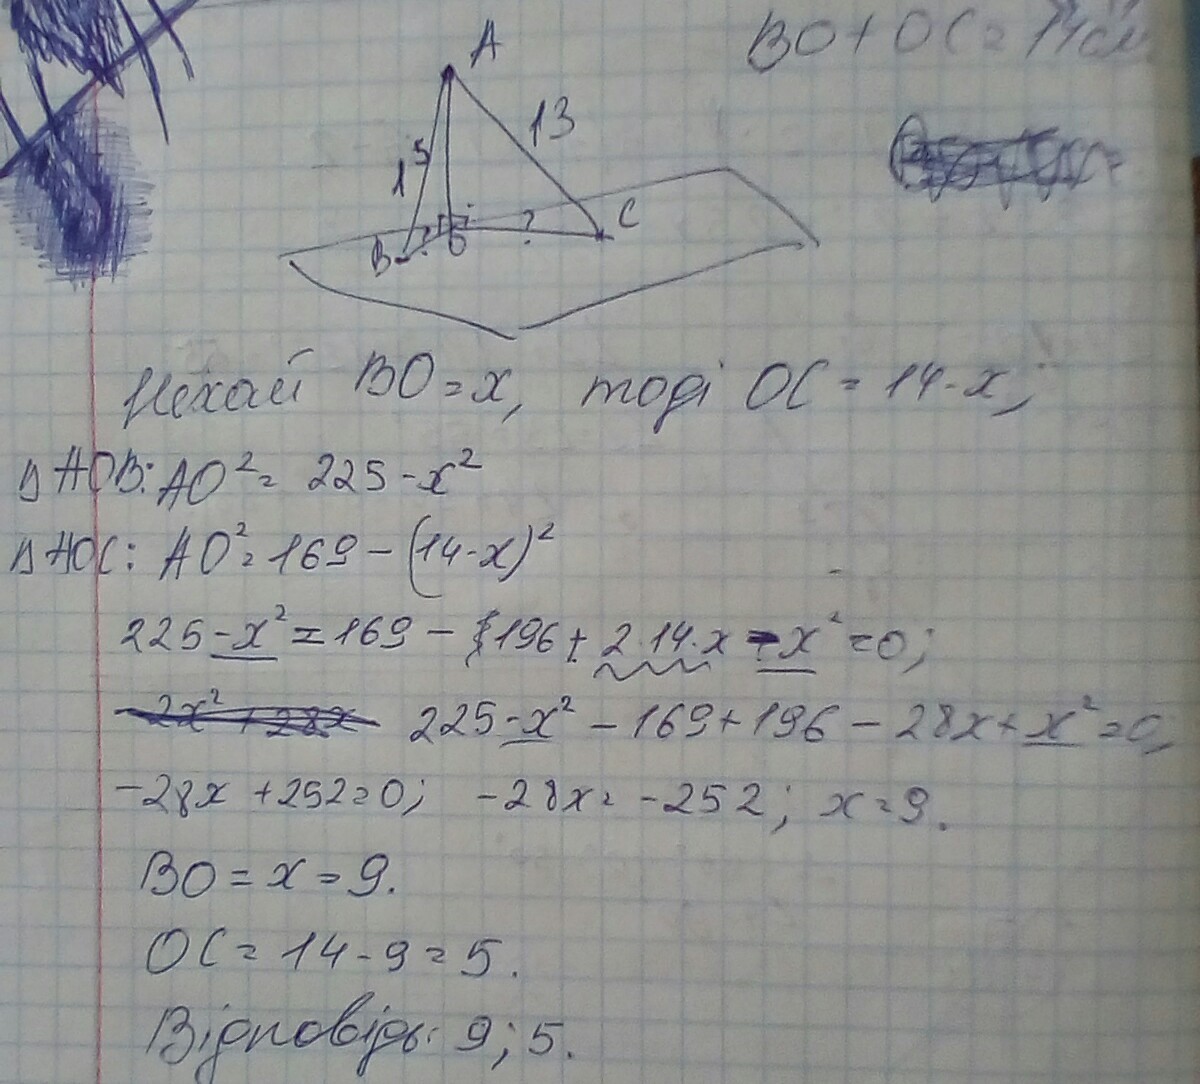 BO + OC = 14 см
A
15
13
B
?
O
?
C
Нехай BO = x, тоді OC = 14 - x;
Δ AOB: AO² = 225 - x²
Δ AOC: AO² = 169 - (14 - x)²
225 - x² = 169 - 196 + 2·14·x - x² = 0;
225 - x² - 169 + 196 - 28x + x² = 0,
-28x + 252 = 0; -28x = -252; x = 9.
BO = x = 9.
OC = 14 - 9 = 5.
Відповідь: 9; 5.